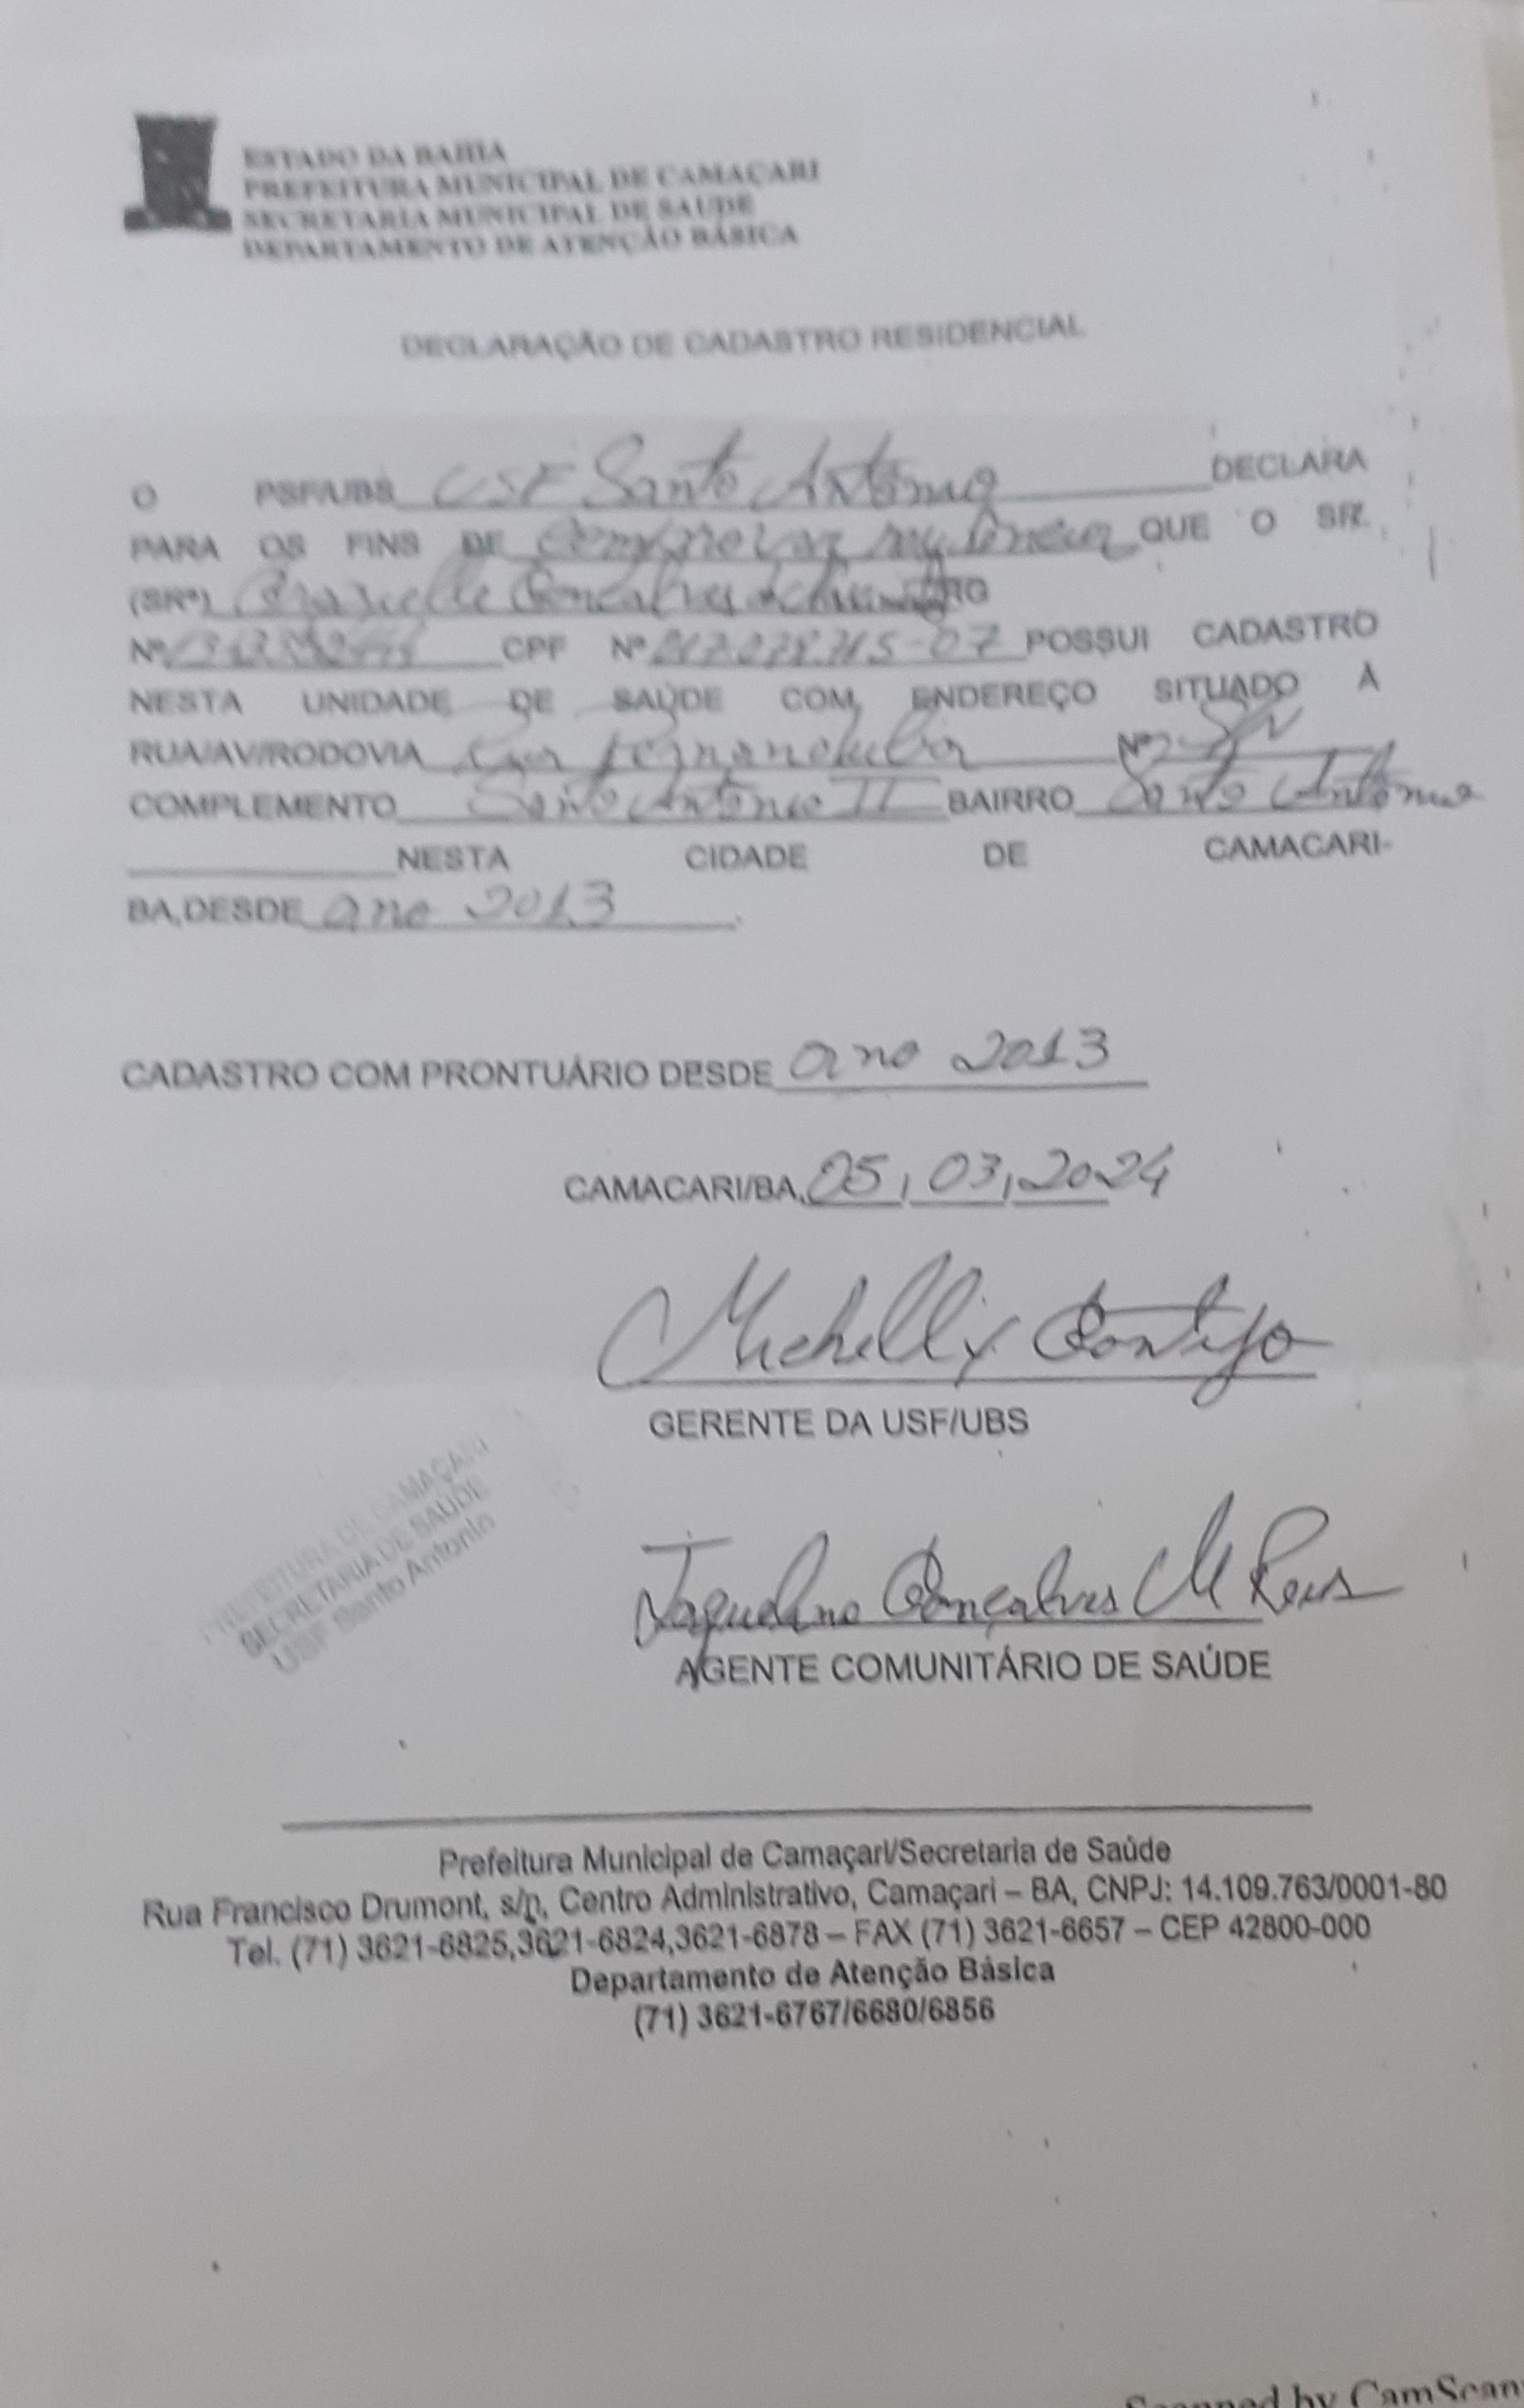 ESTADO DA BAHIA
PREFEITURA MUNICIPAL DE CAMAÇARI
SECRETARIA MUNICIPAL DE SAUDE
DEPARTAMENTO DE ATENÇÃO BÁSICA
DECLARAÇÃO DE CADASTRO RESIDENCIAL
O PSF/UBS USF Santo Antônio DECLARA
PARA OS FINS DE comprovar QUE O SR.
(SRª) Gonçalves RG
Nº CPF Nº POSSUI CADASTRO
NESTA UNIDADE DE SAÚDE COM ENDEREÇO SITUADO À
RUA/AV/RODOVIA Nº S/N
COMPLEMENTO Santo Antônio II BAIRRO Santo Antônio
NESTA CIDADE DE CAMACARI-
BA,DESDE ano 2013.
CADASTRO COM PRONTUÁRIO DESDE ano 2013
CAMACARI/BA, 05, 03, 2024
Michelly
GERENTE DA USF/UBS
Jaqueline Gonçalves M Reis
AGENTE COMUNITÁRIO DE SAÚDE
PREFEITURA DE CAMAÇARI
SECRETARIA DE SAÚDE
USF Santo Antonio
Prefeitura Municipal de Camaçari/Secretaria de Saúde
Rua Francisco Drumont, s/n, Centro Administrativo, Camaçari – BA, CNPJ: 14.109.763/0001-80
Tel. (71) 3621-6825,3621-6824,3621-6878 – FAX (71) 3621-6657 – CEP 42800-000
Departamento de Atenção Básica
(71) 3621-6767/6680/6856
Scanned by CamScan